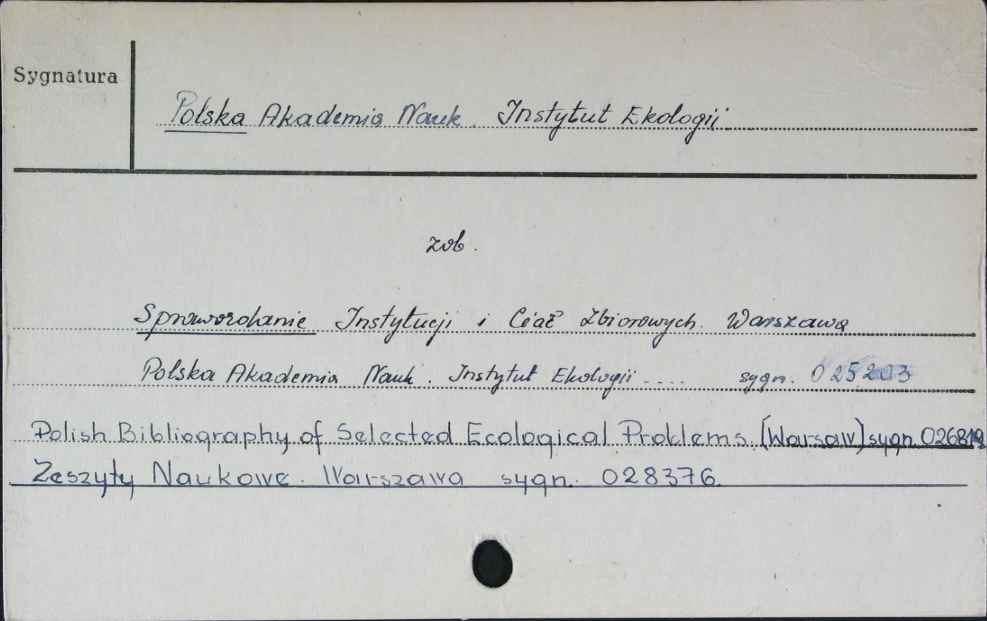 Sygnatura
Polska Akademia Nauk. Instytut Ekologii
zob.
Sprawozdanie Instytucji i Ciał Zbiorowych. Warszawa
Polska Akademia Nauk. Instytut Ekologii .... sygn. 025203
Polish Bibliography of Selected Ecological Problems. (Warsaw) sygn. 026819
Zeszyty Naukowe. Warszawa sygn. 028376.